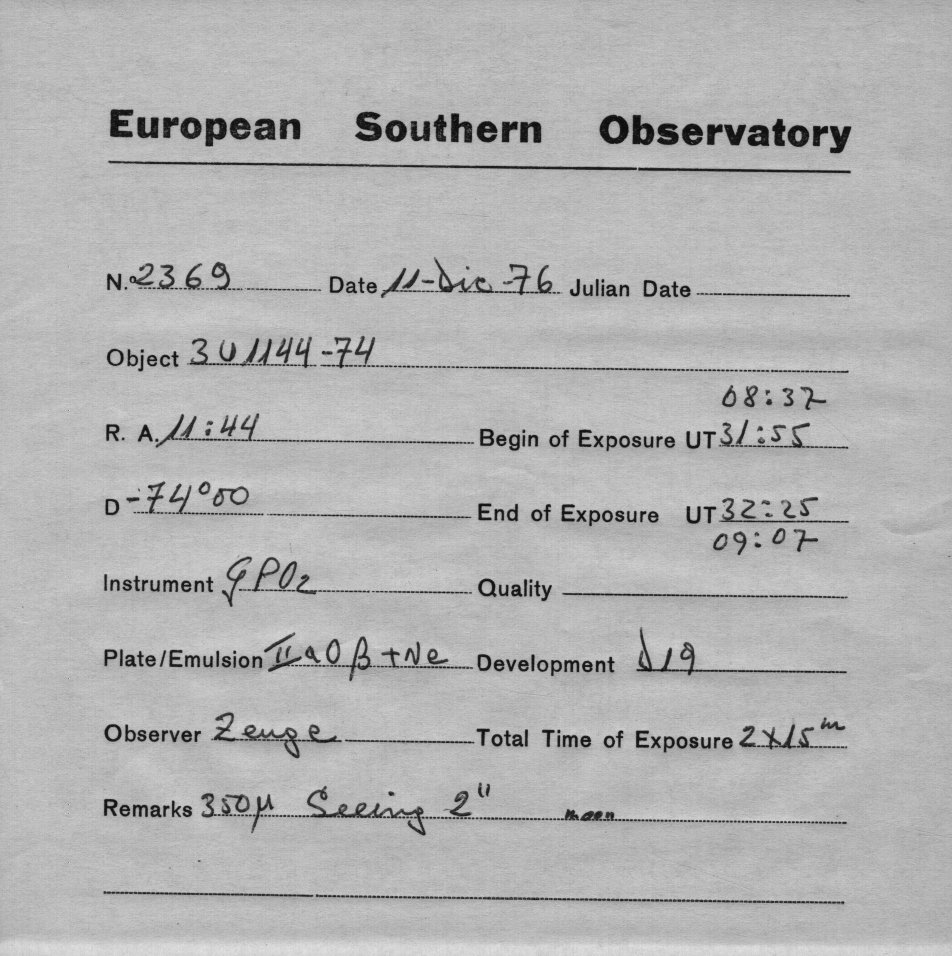 European Southern Observatory
N.º 2369 Date 11-Dic-76 Julian Date
Object 3U1144-74
08:37
R. A. 11:44 Begin of Exposure UT 31:55
D -74°00 End of Exposure UT 32:25
09:07
Instrument GPO2 Quality
Plate/Emulsion IIaO β +Ne Development D19
Observer Zeuge Total Time of Exposure 2x15m
Remarks 350μ Seeing 2" moon